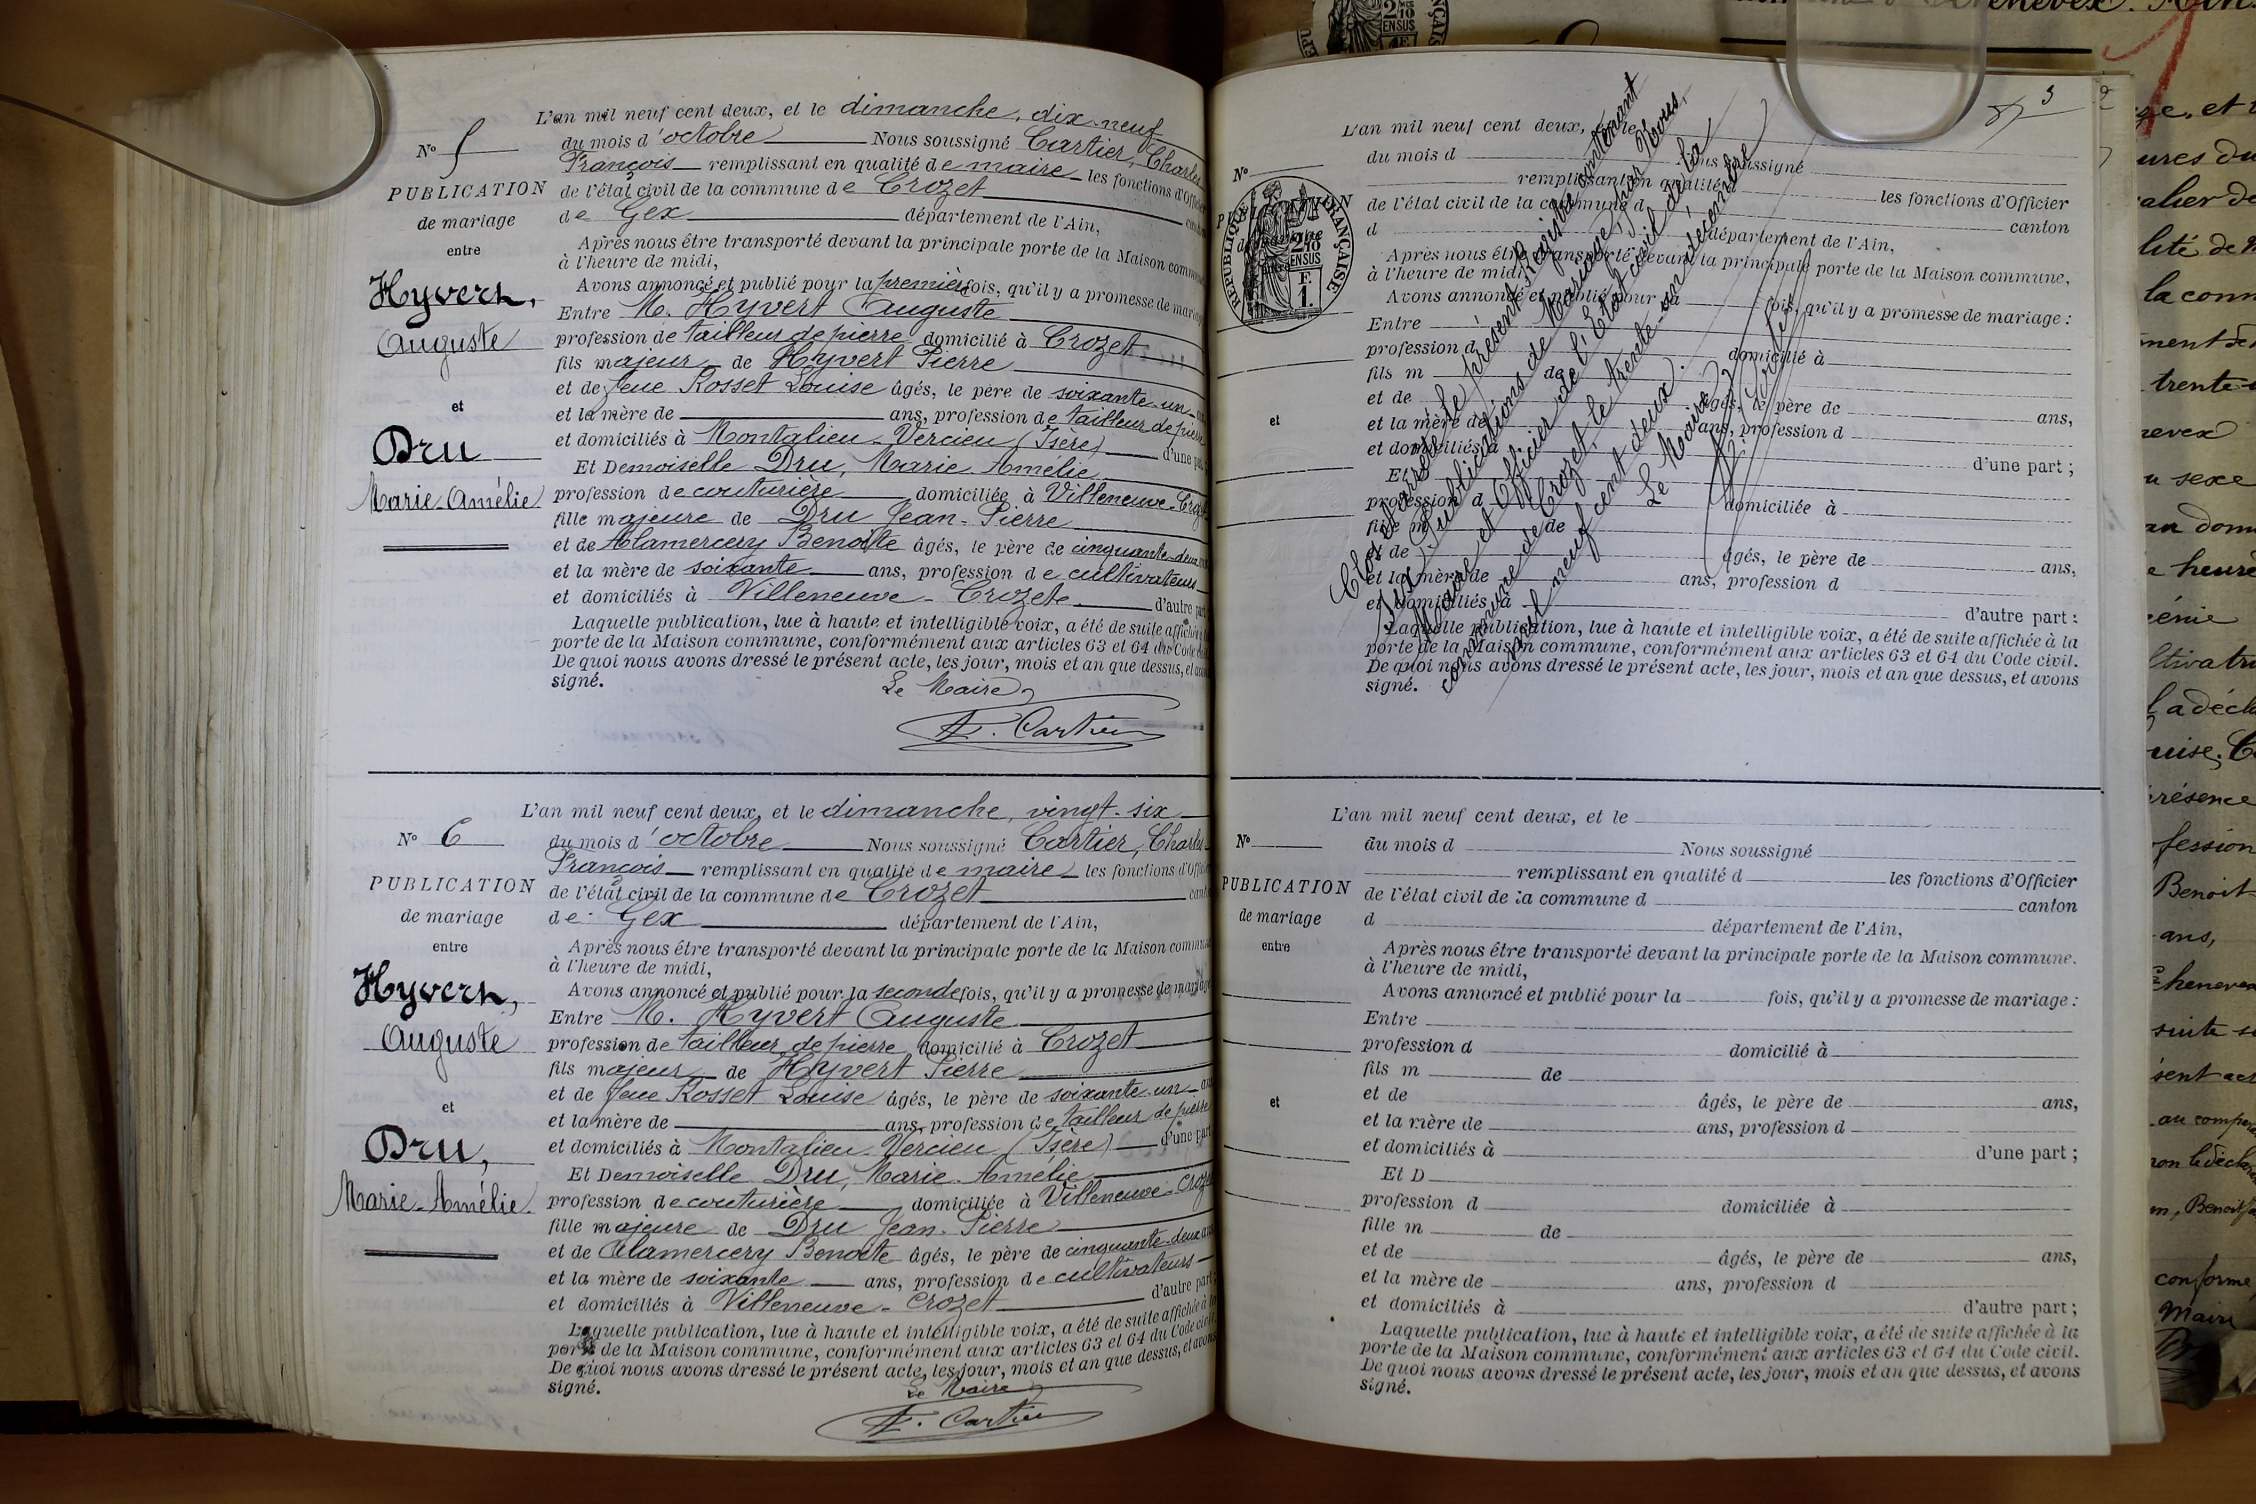 L'an mil neuf cent deux, et le dimanche, dix-neuf
du mois d'octobre Nous soussigné Cartier, Charles
François remplissant en qualité de maire les fonctions d'Officier
de l'état civil de la commune de Crozet
de Gex département de l'Ain,
Après nous être transporté devant la principale porte de la Maison
à l'heure de midi,
Avons annoncé et publié pour la première fois, qu'il y a promesse de
Entre M. Hyvert Auguste
profession de tailleur de pierre domicilié à Crozet
fils majeur de Hyvert Pierre
et de feue Rosset Louise âgés, le père de soixante-un
et la mère de ans, profession de tailleur de pierre
et domiciliés à Montalieu-Vercieu (Isère) d'une part
Et Demoiselle Dru, Marie Amélie
profession de couturière domiciliée à Villeneuve-
fille majeure de Dru Jean-Pierre
et de Alamercery Benoite âgés, le père de cinquante-deux
et la mère de soixante ans, profession de cultivateurs
et domiciliés à Villeneuve-Crozet d'autre part
Laquelle publication, lue à haute et intelligible voix, a été de suite affichée
porte de la Maison commune, conformément aux articles 63 et 64 du Code
De quoi nous avons dressé le présent acte, les jour, mois et an que dessus, et
signé.
Le Maire
F. Cartier
N° 5
PUBLICATION
de mariage
entre
Hyvert,
Auguste
et
Dru
Marie-Amélie
L'an mil neuf cent deux, et le dimanche, vingt-six
du mois d'octobre Nous soussigné Cartier, Charles
François remplissant en qualité de maire les fonctions
de l'état civil de la commune de Crozet
de Gex département de l'Ain,
Après nous être transporté devant la principale porte de la Maison
à l'heure de midi,
Avons annoncé et publié pour la seconde fois, qu'il y a promesse de mariage
Entre M. Hyvert Auguste
profession de tailleur de pierre domicilié à Crozet
fils majeur de Hyvert Pierre
et de feue Rosset Louise âgés, le père de soixante-un
et la mère de ans, profession de tailleur de pierre
et domiciliés à Montalieu-Vercieu (Isère) d'une part
Et Demoiselle Dru, Marie-Amélie
profession de couturière domiciliée à Villeneuve-
fille majeure de Dru Jean-Pierre
et de Alamercery Benoite âgés, le père de cinquante-deux
et la mère de soixante ans, profession de cultivateurs
et domiciliés à Villeneuve-Crozet d'autre part
Laquelle publication, lue à haute et intelligible voix, a été de suite affichée à
porte de la Maison commune, conformément aux articles 63 et 64 du Code
De quoi nous avons dressé le présent acte, les jour, mois et an que dessus, et avons
signé.
Le Maire
F. Cartier
N° 6
PUBLICATION
de mariage
entre
Hyvert,
Auguste
et
Dru,
Marie-Amélie
3
L'an mil neuf cent deux, et le
du mois d Nous soussigné
remplissant en qualité d les fonctions d'Officier
de l'état civil de la commune d canton
d département de l'Ain,
Après nous être transporté devant la principale porte de la Maison commune,
à l'heure de midi,
Avons annoncé et publié pour la fois, qu'il y a promesse de mariage :
Entre
profession d domicilié à
fils m de
et de âgés, le père de ans,
et la mère de ans, profession d
et domiciliés à d'une part ;
Et
profession d domiciliée à
fille m de
et de âgés, le père de ans,
et la mère de ans, profession d
et domiciliés à d'autre part :
Laquelle publication, lue à haute et intelligible voix, a été de suite affichée à la
porte de la Maison commune, conformément aux articles 63 et 64 du Code civil.
De quoi nous avons dressé le présent acte, les jour, mois et an que dessus, et avons
signé.
N°
PUBLICATION
de mariage
et
RÉPUBLIQUE FRANÇAISE
F.
1.
Clos et arrêté le présent Registre contenant
Six Publications de Mariage, par Nous,
Maire et Officier de l'Etat civil de la
commune de Crozet, le trente-un décembre
mil neuf cent deux.
Le Maire
L'an mil neuf cent deux, et le
du mois d Nous soussigné
remplissant en qualité d les fonctions d'Officier
de l'état civil de la commune d canton
d département de l'Ain,
Après nous être transporté devant la principale porte de la Maison commune.
à l'heure de midi,
Avons annoncé et publié pour la fois, qu'il y a promesse de mariage :
Entre
profession d domicilié à
fils m de
et de âgés, le père de ans,
et la mère de ans, profession d
et domiciliés à d'une part ;
Et D
profession d domiciliée à
fille m de
et de âgés, le père de ans,
et la mère de ans, profession d
et domiciliés à d'autre part ;
Laquelle publication, lue à haute et intelligible voix, a été de suite affichée à la
porte de la Maison commune, conformément aux articles 63 et 64 du Code civil.
De quoi nous avons dressé le présent acte, les jour, mois et an que dessus, et avons
signé.
N°
PUBLICATION
de mariage
entre
et